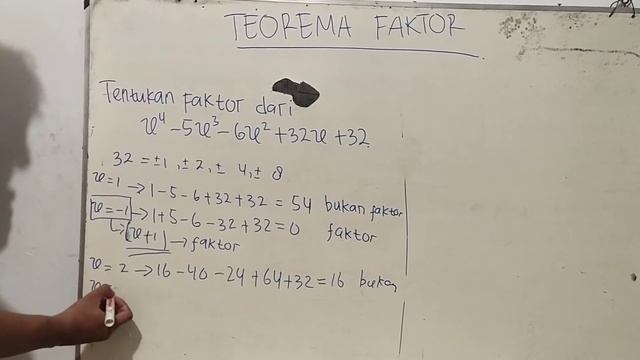 TEOREMA FAKTOR
Tentukan Faktor dari
x⁴ - 5x³ - 6x² + 32x + 32
32 = ±1, ±2, ± 4, ± 8
x = 1 → 1 - 5 - 6 + 32 + 32 = 54 bukan faktor
x = -1 → 1 + 5 - 6 - 32 + 32 = 0 faktor
(x+1) → faktor
x = 2 → 16 - 40 - 24 + 64 + 32 = 16 bukan
x